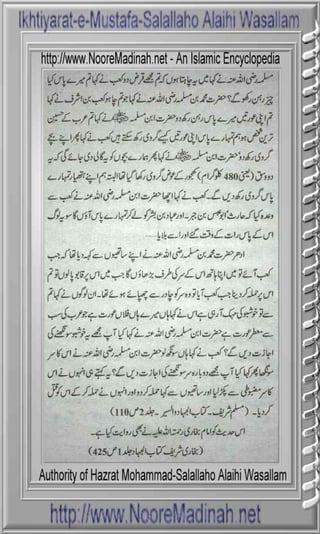 Ikhtiyarat-e-Mustafa-Salallaho Alaihi Wasallam
http://www.NooreMadinah.net - An Islamic Encyclopedia
مسلمہ رضی اللہ عنہ نے کہا میں یہ چاہتا ہوں کہ تم مجھے قرض دو کعب نے کہا تم میرے پاس کیا
چیز رہن رکھو گے؟ حضرت محمد بن مسلمہ رضی اللہ عنہ نے کہا جو تم چاہو کعب بن اشرف نے کہا
تم اپنی عورتیں میرے پاس رہن رکھ دو حضرت ابن مسلمہ نے کہا تم عرب کے حسین
ترین شخص ہو ہم تمہارے پاس اپنی عورتیں کیسے گروی رکھ سکتے ہیں کعب نے کہا پھر اپنے بچے
گروی رکھ دو حضرت ابن مسلمہ نے کہا پھر ہمارے بچوں کو یہ گالی دی جائے گی کہ یہ
دو وسق (یعنی 480 کلوگرام) کھجور کے عوض گروی رکھا گیا تھا البتہ ہم اپنے ہتھیار تمہارے
پاس گروی رکھ دیں گے۔ کعب نے کہا اچھا حضرت ابن مسلمہ رضی اللہ عنہ نے کعب سے
وعدہ کیا کہ حارث ابو عبس بن جبر۔ اور عباد بن بشر کو لے کر تمہارے پاس آؤں گا سو یہ لوگ
اس کے پاس رات کے وقت گئے اور اسے بلایا
ادھر حضرت محمد بن مسلمہ رضی اللہ عنہ نے اپنے ساتھیوں سے کہہ دیا تھا کہ جب
کعب آئے تو میں اپنا ہاتھ اس کے سر کی طرف بڑھاؤں گا جب میں اس پر قابو پالوں تو تم
اس پر حملہ کر دینا جب کعب آیا تو وہ سر کو چادر سے چھپائے ہوئے تھا۔ ان لوگوں نے کہا تم
سے تو خوشبو کی مہک آرہی ہے اس نے کہا ہاں میرے ہاں فلاں عورت ہے جو عرب کی سب
سے معطر عورت ہے حضرت ابن مسلمہ رضی اللہ عنہ نے کہا کیا آپ مجھے یہ خوشبو سونگھنے کی
اجازت دیں گے؟ کعب نے کہا ہاں سونگھ لو حضرت ابن مسلمہ رضی اللہ عنہ نے اس کا سر
سونگھا پھر کہا کیا آپ مجھے دوبارہ سر سونگھنے کی اجازت دیں گے؟ یہ کہتے ہی انہوں نے اس
کا سر مضبوطی سے پکڑ لیا اور ساتھیوں سے کہا حملہ کر دو اور انہوں نے حملہ کر کے اس کو قتل
کر دیا۔ (مسلم شریف۔ کتاب الجہاد والسیر۔ جلد 2 ص 110)
اس حدیث کو امام بخاری رحمۃ اللہ علیہ نے بھی روایت کیا ہے۔
(بخاری شریف کتاب الجہاد جلد 1 ص 425)
Authority of Hazrat Mohammad-Salallaho Alaihi Wasallam
http://www.NooreMadinah.net